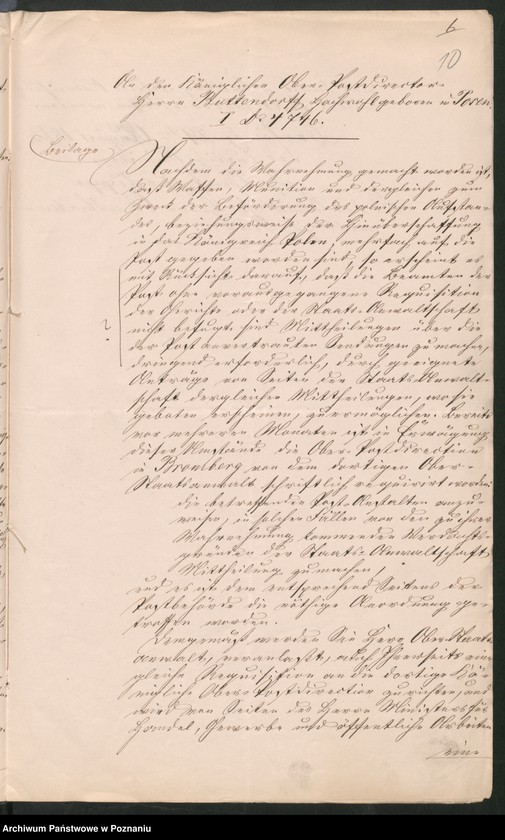 6
10
An den Königlichen Ober-Postdirector
Herrn Buttendorff, Hochwohlgeboren in Posen.
I D. 4746.
Beilage
Nachdem die Wahrnehmung gemacht worden ist,
daß Waffen, Munition und dergleichen zum
Zweck der Beförderung des polnischen Aufstan-
des, beziehungsweise der Hinüberschaffung
in das Königreich Polen, mehrfach auf die
Post gegeben worden sind, so erscheint es
mit Rücksicht darauf, daß die Beamten der
Post ohne vorausgegangene Requisition
der Gerichte oder der Staats-Anwaltschaft
nicht befugt sind Mittheilungen über die
?
der Post anvertrauten Sendungen zu machen,
dringend erforderlich, durch geeignete
Anträge von Seiten der Staats-Anwalt-
schaft dergleichen Mittheilungen, wo sie
geboten erscheinen, zu ermöglichen. Bereits
vor mehreren Monaten ist in Erwägung
dieser Umstände die Ober-Postdirection
in Bromberg von dem dortigen Ober-
Staatsanwalt schriftlich requirirt worden:
die betreffenden Post-Anstalten anzu-
weisen, in solchen Fällen von den zu ihrer
Wahrnehmung kommenden Verdachts-
gründen der Staats-Anwaltschaft
Mittheilung zu machen,
und es ist dem entsprechend Seitens der
Postbehörde die nöthige Anordnung ge-
troffen worden.
Demgemäß werden Sie, Herr Ober-Staats-
anwalt, veranlaßt, auch Ihrerseits eine
gleiche Requisition an die dortige Kö-
nigliche Ober-Postdirection zu richten, und
wird von Seiten des Herrn Ministers für
Handel, Gewerbe und öffentliche Arbeiten
eine
Archiwum Państwowe w Poznaniu